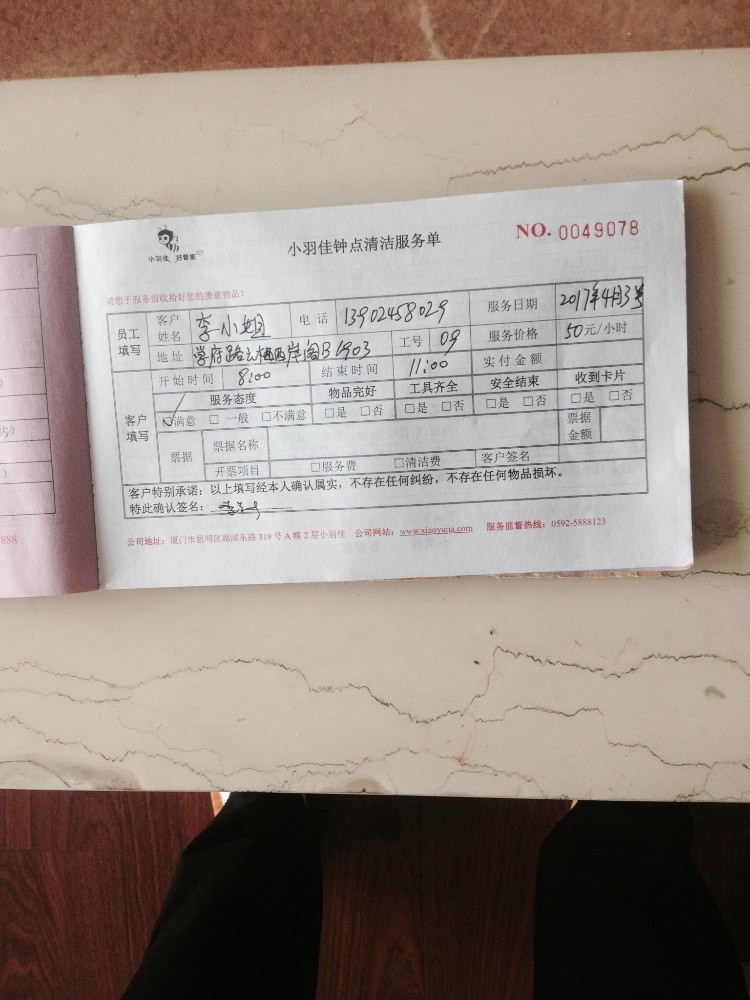 小羽佳 好管家
小羽佳钟点清洁服务单
NO. 0049078
请您于服务前收拾好您的贵重物品!
员工填写 客户姓名 李小姐 电话 13902458029 服务日期 2017年4月3号
地址 学府路 B1903 工号 09 服务价格 50元/小时
客户填写 开始时间 8:00 结束时间 11:00 实付金额
服务态度 物品完好 工具齐全 安全结束 收到卡片
☑满意 □一般 □不满意 □是 □否 □是 □否 □是 □否 □是 □否
票据 票据名称 票据金额
开票项目 □服务费 □清洁费 客户签名
客户特别承诺:以上填写经本人确认属实,不存在任何纠纷,不存在任何物品损坏。
特此确认签名:
公司地址:厦门市思明区湖滨东路319号A幢2层小羽佳 公司网站:www.xiaoyujia.com 服务监督热线:0592-5888123
888